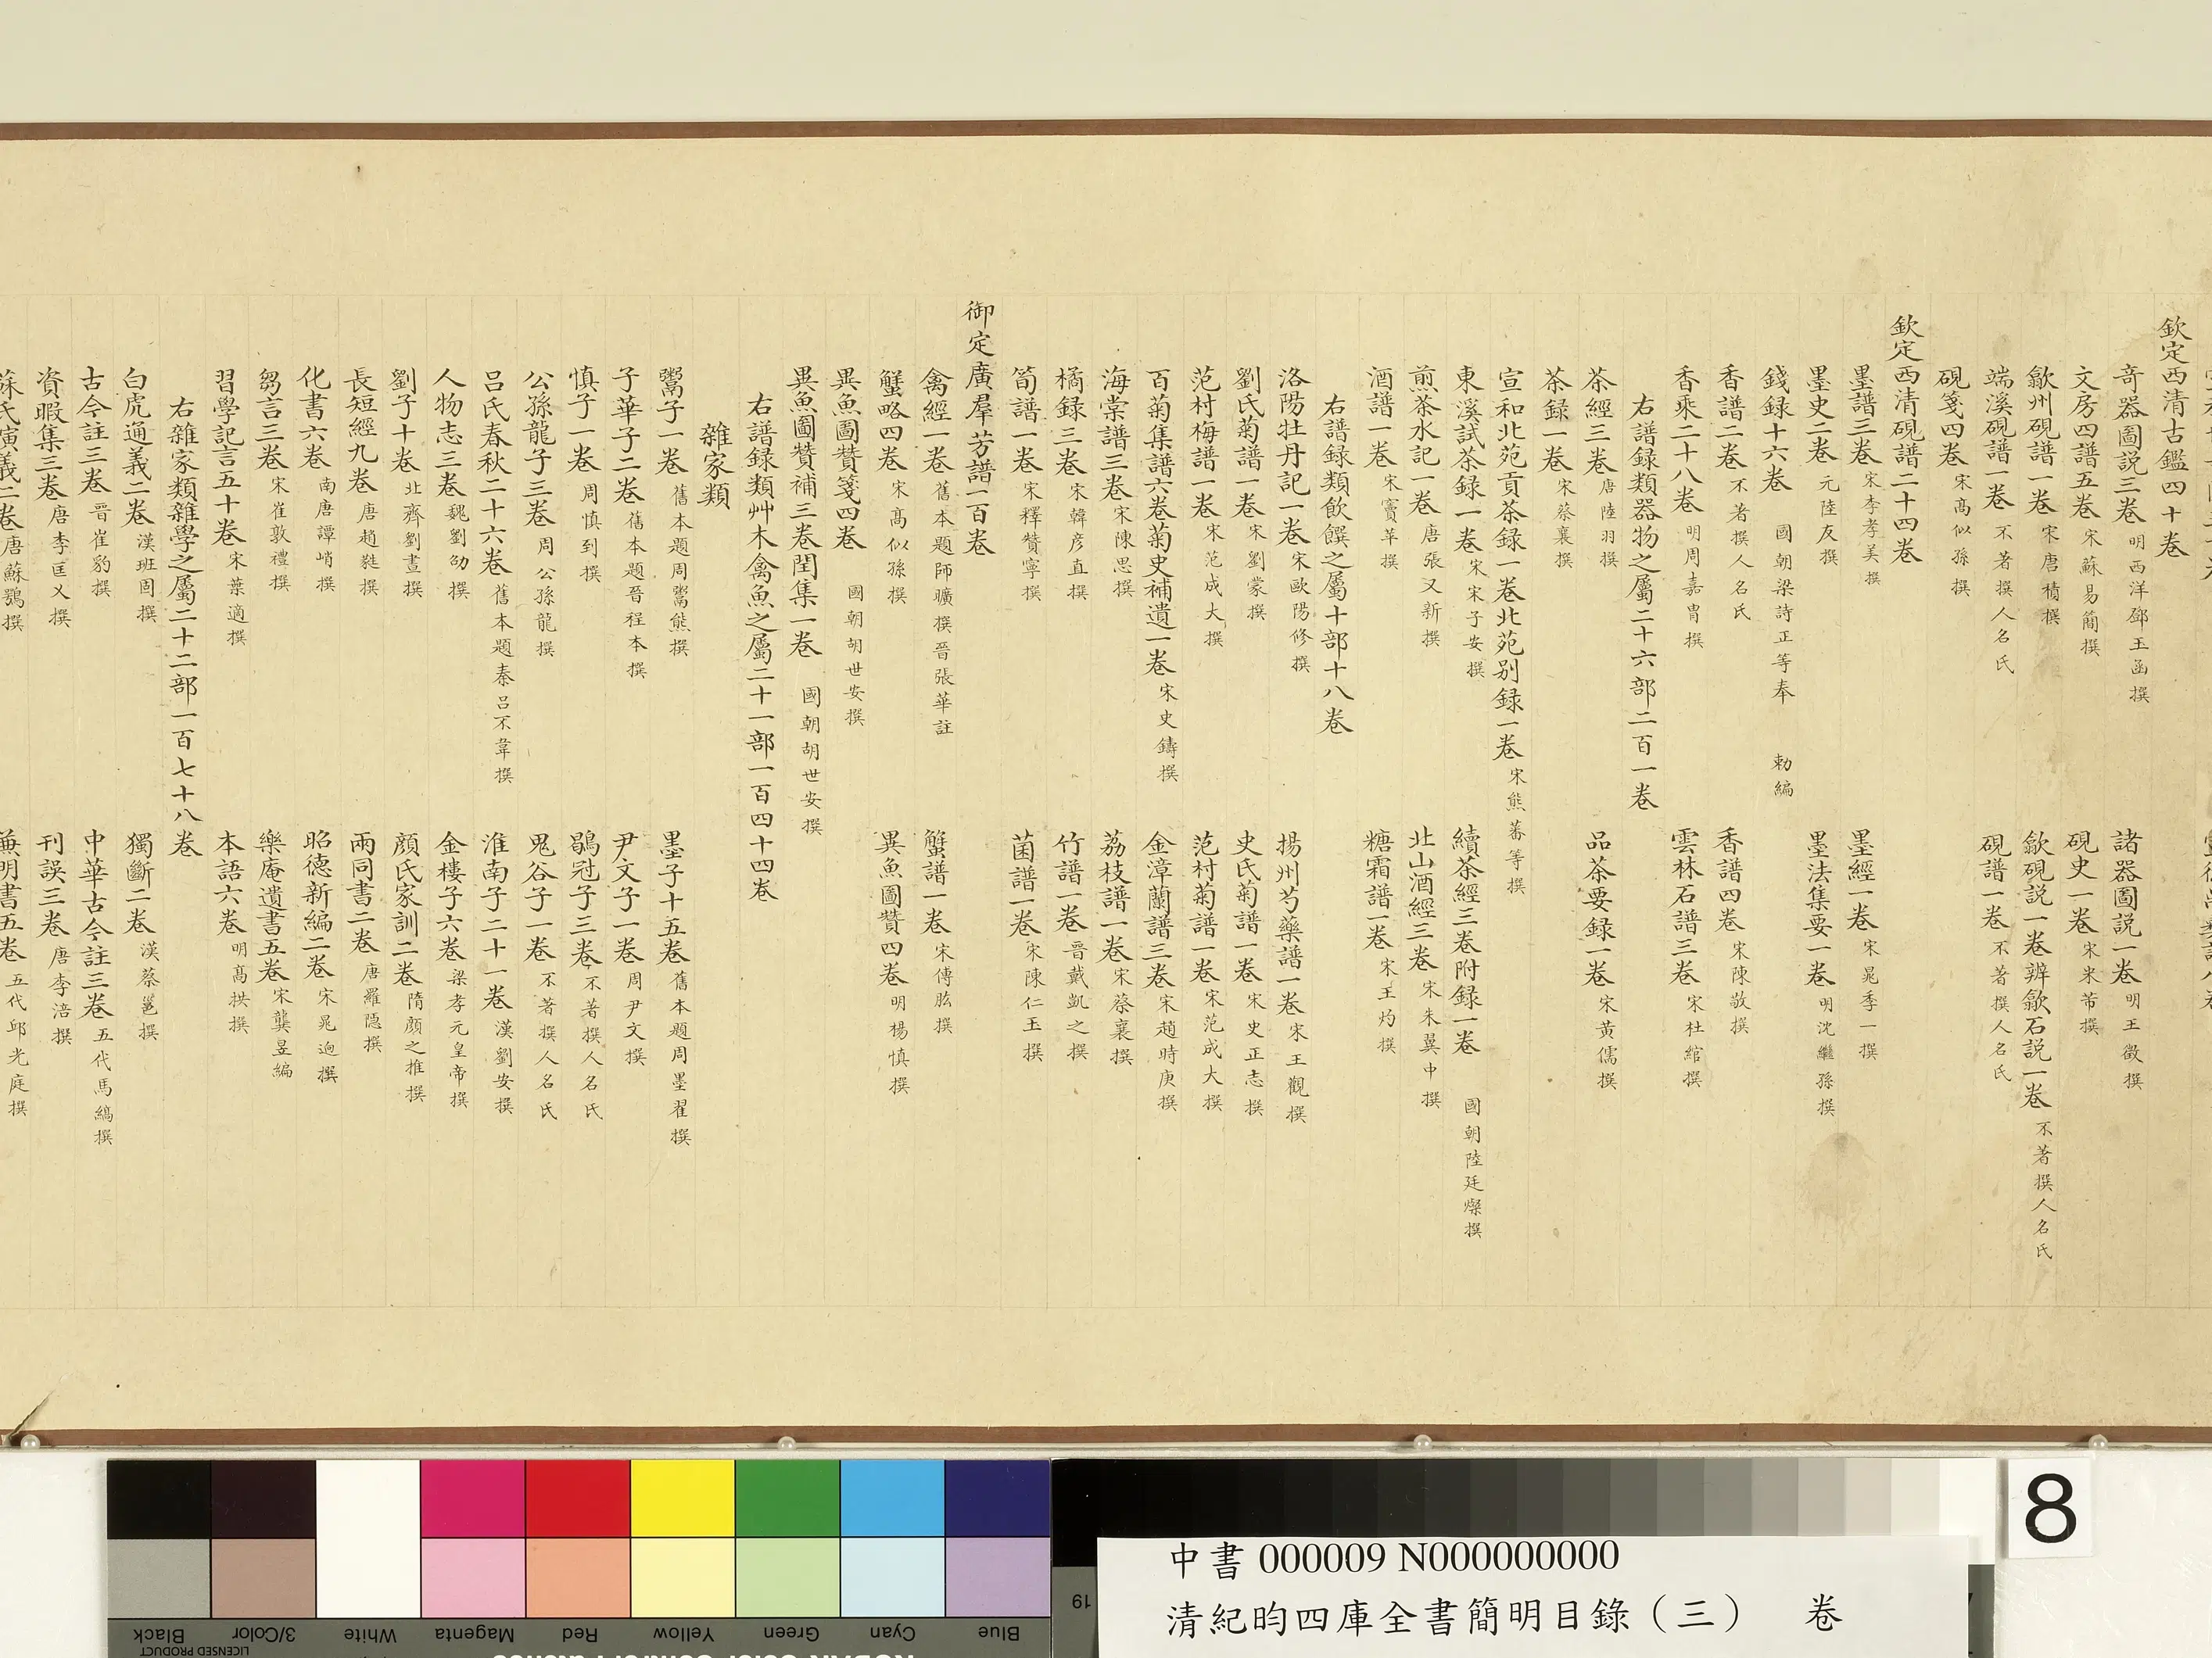 欽定西清古鑑四十卷
奇器圖説三卷 明西洋鄧玉函撰 諸器圖説一卷 明王徵撰
文房四譜五卷 宋蘇易簡撰 硯史一卷 宋米芾撰
歙州硯譜一卷 宋唐積撰 歙硯説一卷辨歙石説一卷 不著撰人名氏
端溪硯譜一卷 不著撰人名氏 硯譜一卷 不著撰人名氏
硯箋四卷 宋高似孫撰
欽定西清硯譜二十四卷
墨譜三卷 宋李孝美撰 墨經一卷 宋晁季一撰
墨史二卷 元陸友撰 墨法集要一卷 明沈繼孫撰
錢録十六卷 國朝梁詩正等奉 勅編
香譜二卷 不著撰人名氏 香譜四卷 宋陳敬撰
香乘二十八卷 明周嘉胄撰 雲林石譜三卷 宋杜綰撰
右譜録類器物之屬二十六部二百一卷
茶經三卷 唐陸羽撰 品茶要録一卷 宋黃儒撰
茶録一卷 宋蔡襄撰
宣和北苑貢茶録一卷北苑别録一卷 宋熊蕃等撰
東溪試茶録一卷 宋宋子安撰 續茶經三卷附録一卷 國朝陸廷燦撰
煎茶水記一卷 唐張又新撰 北山酒經三卷 宋朱翼中撰
酒譜一卷 宋竇苹撰 糖霜譜一卷 宋王灼撰
右譜録類飲饌之屬十部十八卷
洛陽牡丹記一卷 宋歐陽修撰 揚州芍藥譜一卷 宋王觀撰
劉氏菊譜一卷 宋劉蒙撰 史氏菊譜一卷 宋史正志撰
范村梅譜一卷 宋范成大撰 范村菊譜一卷 宋范成大撰
百菊集譜六卷菊史補遺一卷 宋史鑄撰 金漳蘭譜三卷 宋趙時庚撰
海棠譜三卷 宋陳思撰 荔枝譜一卷 宋蔡襄撰
橘録三卷 宋韓彦直撰 竹譜一卷 晉戴凱之撰
筍譜一卷 宋釋贊寧撰 菌譜一卷 宋陳仁玉撰
御定廣羣芳譜一百卷
禽經一卷 舊本題師曠撰晉張華註 蟹譜一卷 宋傅肱撰
蟹略四卷 宋高似孫撰 異魚圖贊四卷 明楊慎撰
異魚圖贊箋四卷 國朝胡世安撰
異魚圖贊補三卷閏集一卷 國朝胡世安撰
右譜録類艸木禽魚之屬二十一部一百四十四卷
雜家類
鬻子一卷 舊本題周鬻熊撰 墨子十五卷 舊本題周墨翟撰
子華子二卷 舊本題晉程本撰 尹文子一卷 周尹文撰
慎子一卷 周慎到撰 鶡冠子三卷 不著撰人名氏
公孫龍子三卷 周公孫龍撰 鬼谷子一卷 不著撰人名氏
吕氏春秋二十六卷 舊本題秦吕不韋撰 淮南子二十一卷 漢劉安撰
人物志三卷 魏劉劭撰 金樓子六卷 梁孝元皇帝撰
劉子十卷 北齊劉晝撰 顔氏家訓二卷 隋顔之推撰
長短經九卷 唐趙蕤撰 兩同書二卷 唐羅隱撰
化書六卷 南唐譚峭撰 昭德新編二卷 宋晁迥撰
芻言三卷 宋崔敦禮撰 樂庵遺書五卷 宋龔昱編
習學記言五十卷 宋葉適撰 本語六卷 明高拱撰
右雜家類雜學之屬二十二部一百七十八卷
白虎通義二卷 漢班固撰 獨斷二卷 漢蔡邕撰
古今註三卷 晉崔豹撰 中華古今註三卷 五代馬縞撰
資暇集三卷 唐李匡乂撰 刊誤三卷 唐李涪撰
蘇氏演義二卷 唐蘇鶚撰 兼明書五卷 五代邱光庭撰
8
中書 000009 N000000000
清紀昀四庫全書簡明目錄（三） 卷
Black 3/Color White Magenta Red Yellow Green Cyan Blue
LICENSED PRODUCT
19